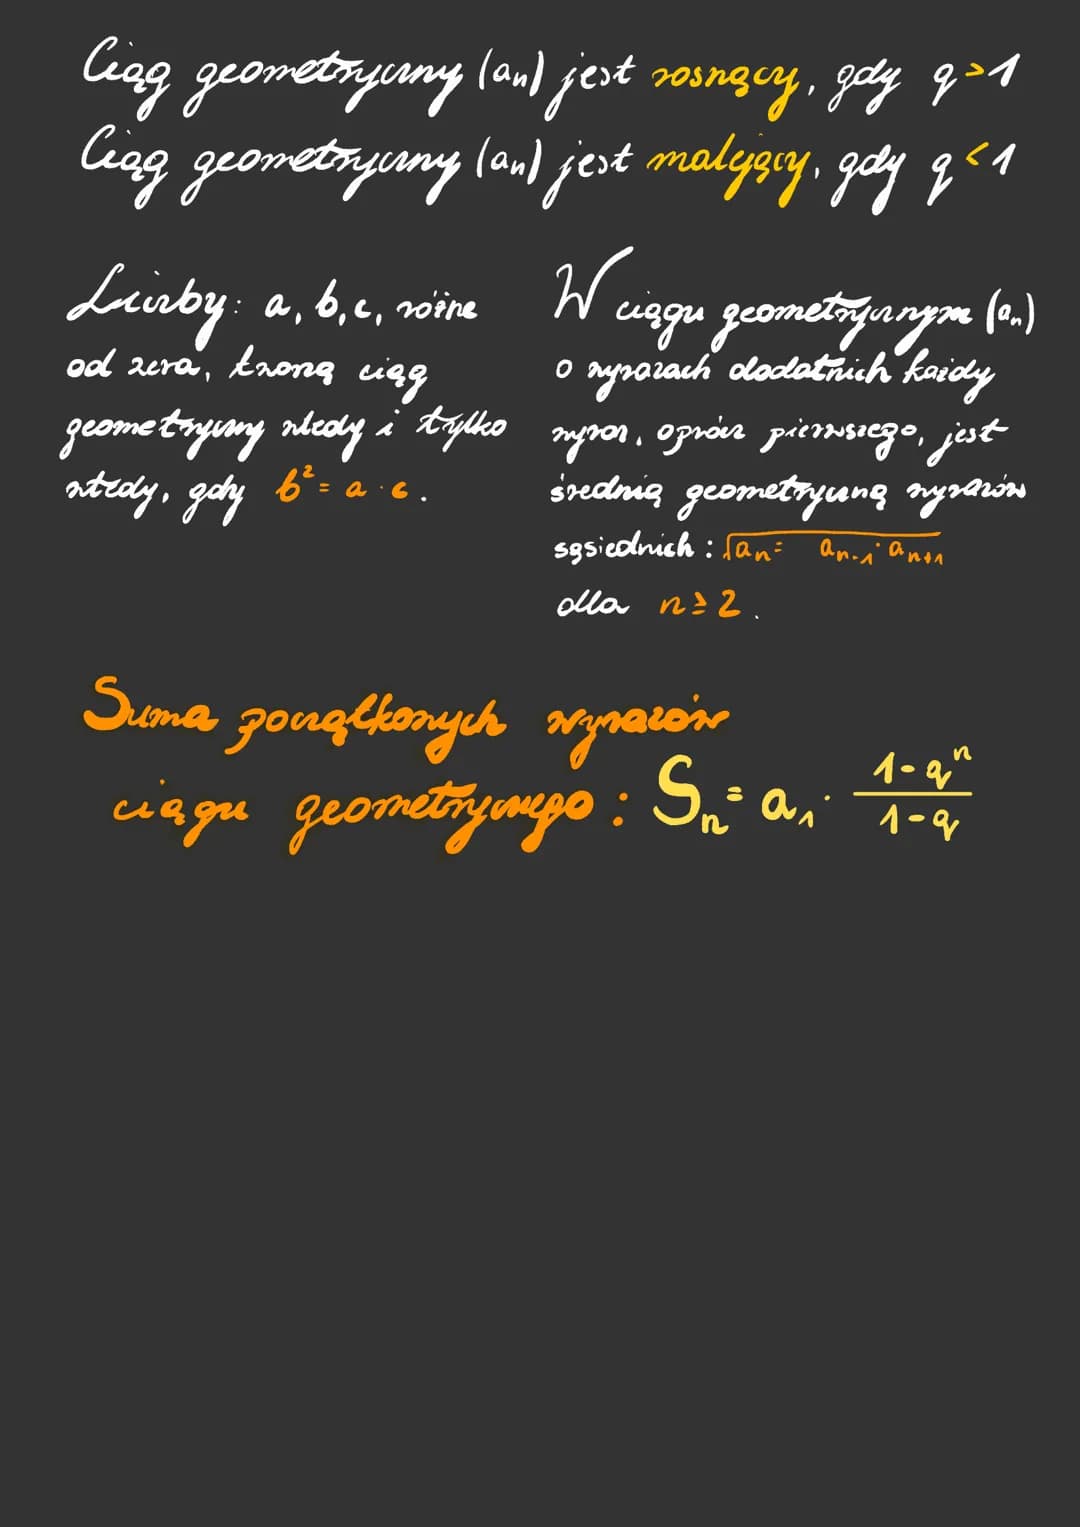 Ciąg geometryczny (aₙ) jest rosnący, gdy q>1
Ciąg geometryczny (aₙ) jest malejący, gdy q<1
Liczby: a, b, c, różne
od zera, tworzą ciąg
geometryczny wtedy i tylko
wtedy, gdy b² = a · c.
W ciągu geometrycznym (aₙ)
o wyrazach dodatnich każdy
wyraz, oprócz pierwszego, jest
średnią geometryczną wyrazów
sąsiednich : √(aₙ = aₙ₋₁ · aₙ₊₁)
dla n ≥ 2.
Suma początkowych wyrazów
ciągu geometrycznego : Sₙ = a₁ · (1-qⁿ)/(1-q)